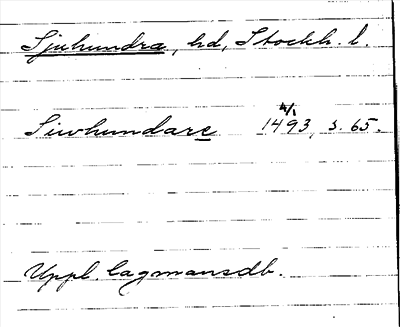 Sjuhundra, hd, Stockh. l.
Siwhundare 4/1 1493, s. 65.
Uppl. lagmansdb.